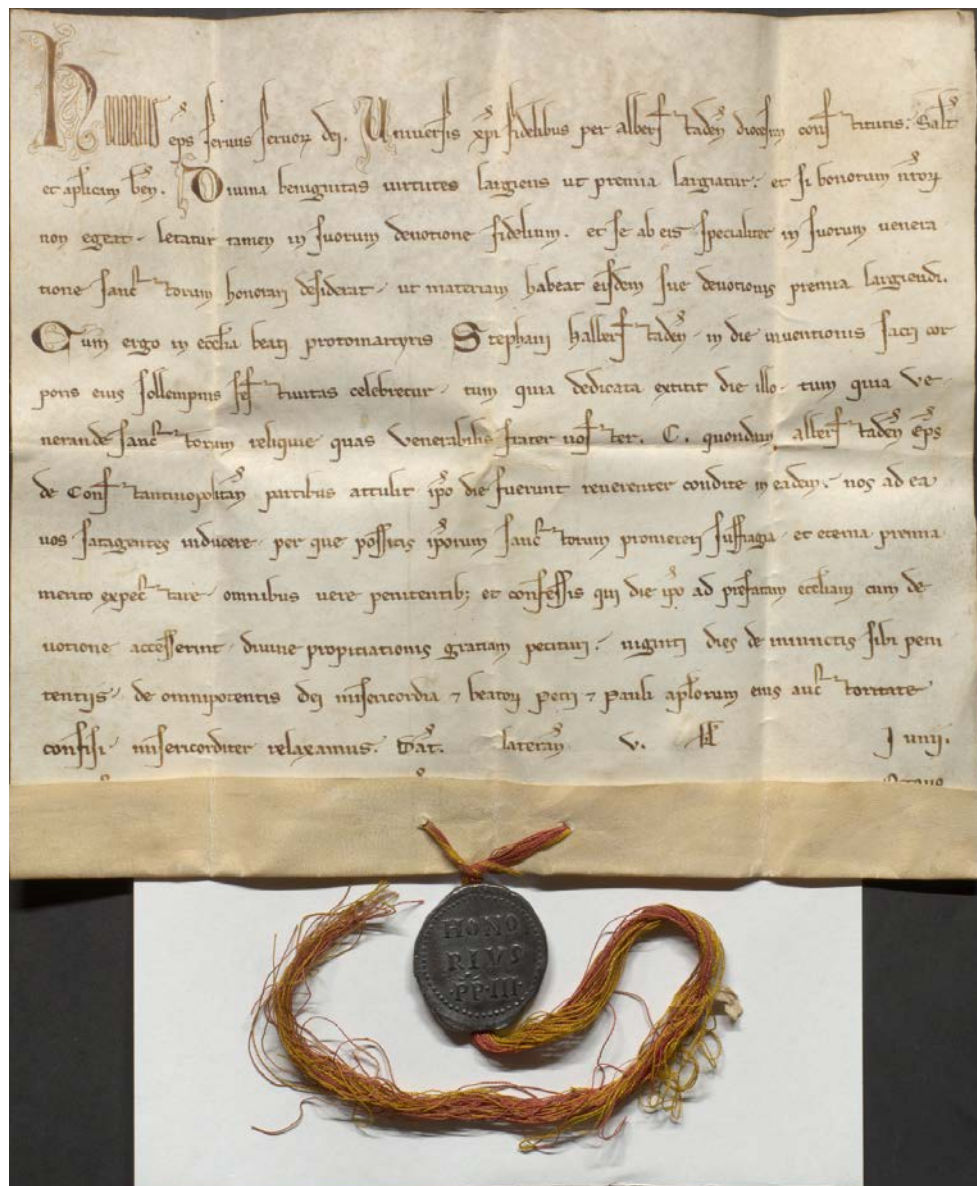 Honorius ep̄s seruus seruoꝝ dei. Uniuersis xp̄i fidelibus per alberstadeñ diocesim constitutis: Salt̄
et ap̄licam beñ. Diuina benignitas uirtutes largiens ut premia largiatur. et si bonorum n̄roꝝ
non egeat. letatur tamen in suorum deuotione fidelium. et se ab eis specialiter in suorum uenera
tione sanctorum honorari desiderat. ut materiam habeat eisdem sue deuotionis premia largiendi.
Cum ergo in eccl̄ia beati protomartyris Stephani Halberstadeñ. in die inuentionis sacri cor
poris eius sollempnis festiuitas celebretur. tum quia dedicata extitit die illo. tum quia ve
nerande sanctorum reliquie quas venerabilis frater noster. C. quondam alberstadeñ ep̄s
de Constantinopolitañ partibus attulit ip̄o die fuerunt reuerenter condite in eadem. nos ad ea
uos satagentes inducere. per que possitis ip̄orum sanctorum promereri suffragia. et eterna premia
merito expectare. omnibus uere penitentib; et confessis qui die ip̄o ad prefatam eccl̄iam cum de
uotione accesserint. diuine propitiationis gratiam petituri. uiginti dies de iniunctis sibi peni
tentijs. de omnipotentis dei misericordia ⁊ beatoꝝ Petri ⁊ Pauli ap̄lorum eius auctoritate
confisi. misericorditer relaxamus. Dat̄. Laterañ v. kl̄ Iunii.
HONO
RIVS
·PP·III·